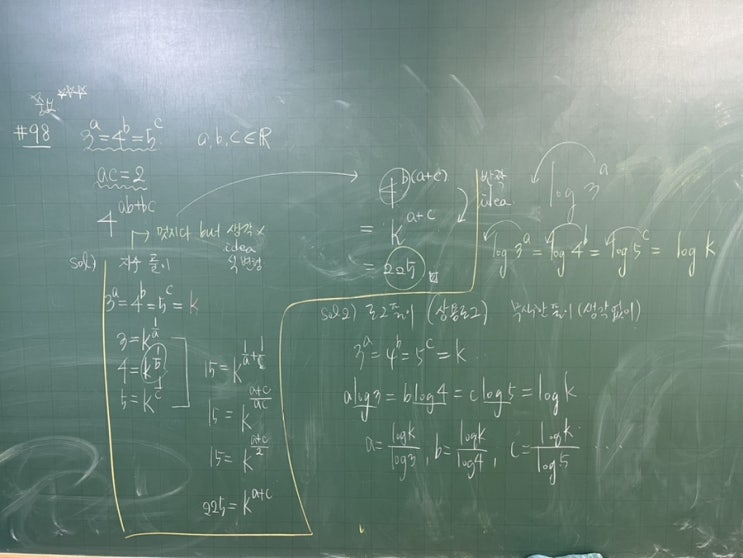 중요 ***
#98 3^a=4^b=5^c a,b,c∈ℝ
ac=2
4^{ab+bc}
→ 멋지다 but 생각×
idea
식변형
sol) 지수 풀이
3^a=4^b=5^c=k
3=k^{1/a}
4=k^{1/b}
5=k^{1/c}
15=k^{1/a+1/c}
15=k^{(a+c)/ac}
15=k^{(a+c)/2}
225=k^{a+c}
4^{b(a+c)}
=k^{a+c}
=225
idea
log 3^a
log3^a=log4^b=log5^c=log k
sol2) 로그풀이 (상용로그) 풀이 (생각없이)
3^a=4^b=5^c=k
alog3=blog4=clog5=logk
a=logk/log3, b=logk/log4, c=logk/log5 ...